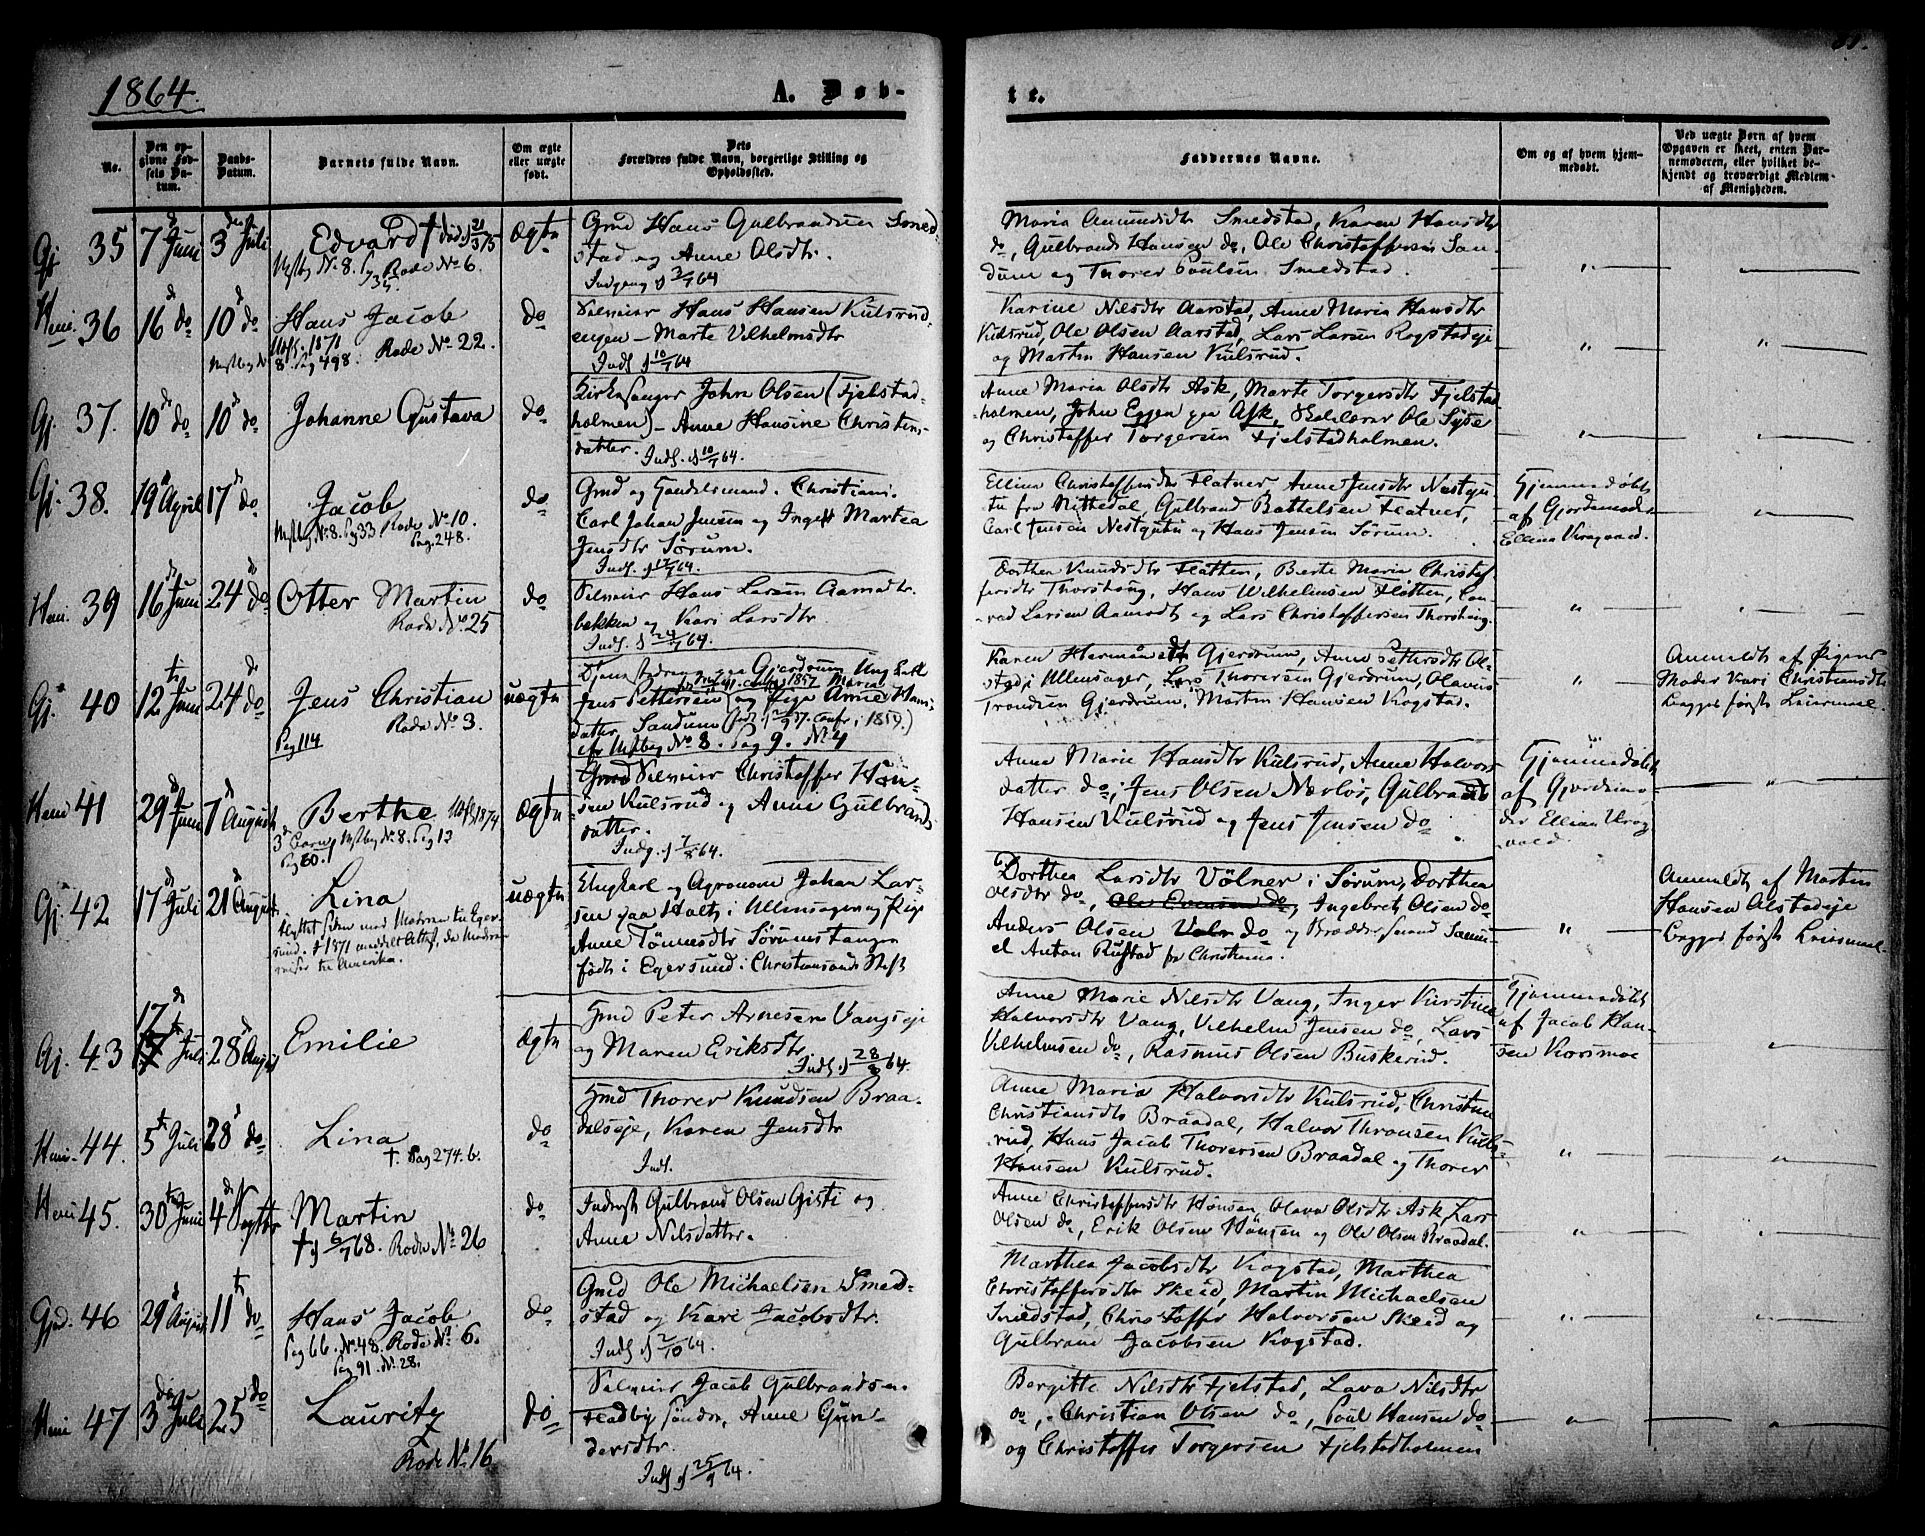 1864.
A. Døb-
te.
No.
Den op-
givne Fød-
sels Da-
tum.
Daabs-
Datum.
Barnets fulde Navn.
Om ægte
eller uægte
født.
Dets
Forældres fulde Navn, borgerlige Stilling og
Opholdssted.
Faddernes Navne.
Om og af hvem hjem-
medøbt.
Ved uægte Børn af hvem
Opgaven er skeet, enten Bar-
nemoderen, eller hvilket be-
kjendt og troværdigt Medlem
af Menigheden.
Gj. 35 7de Juni 3die Juli
Edvard † død 21/3 75
No. 8. Pg 35. Rode No. 6.
Ægte
Gmd Hans Gulbrandsen Smed-
stad og Anne Olsdtr.
Indgang d 3/7 64
Maria Amundsdtr Smedstad, Karen Hansdtr
do, Gulbrand Hansen do, Ole Christoffersen San-
dum og Thorer Poulsen Smedstad.
Hemi. 36 16de do 10de do
Hans Jacob
1871 Rode No. 22.
8. Pag 498.
do
Selveier Hans Hansen Kulsrud-
engen – Marte Vilhelmsdtr
Indl. d 10/7 64
Karine Nilsdtr Aarstad, Anne Maria Hansdtr
Kulsrud, Ole Olsen Aarstad, Lars Larsen Rogstadeje
og Martin Hansen Kulsrud.
Gj. 37. 10de do 10de do
Johanne Gustava
do
Kirkesanger John Olsen (Fjelstad-
holmen) – Anne Hansine Christens-
datter. Indl. d 10/7 64.
Anne Maria Olsdtr Ask, Marte Torgersdtr Fjelstad-
holmen, John Eggen paa Ask, Skolelærer Ole Syse
og Christoffer Torgersen Fjelstadholmen.
Gj. 38. 19de April 17de do
Jacob
No. 8. Pg 33 Rode No. 10.
Pag. 248.
do
Gmd og Handelsmand. Christiani.
Carl Johan Jensen og Inge Martea
Jensdtr Sørum.
Indl. d 17/7 64.
Ellina Christoffersdtr Flatner Anne Jensdtr Nestgu-
tu fra Nittedal, Gulbrand Battelsen Flatner,
Carl Jensen Nestgutu og Hans Jensen Sørum.
Hjemmedøbt
af Gjordemoder
Ellina Kragaard.
Hemi. 39 16de Juni 24de do
Otter Martin
Rode No. 25
do
Selveier Hans Larsen Aamodt-
bakken og Kari Larsdtr.
Indl. d 24/7 64.
Dorthea Knudsdtr Flatten, Berte Maria Christof-
fersdtr Thorshaug, Hans Wilhelmsen Flatten, Con-
rad Larsen Aamodt og Lars Christoffersen Thorshaug.
Gj. 40 12te Juni 24de do
Jens Christian
Rode No. 3.
Pag 114
uægte
Tjenestedreng paa Gjerdrum Ung Karl
Jens Pettersen og Pige Anne Hans-
datter Sandum (født 37. Conf. i 1852.)
cfr No. 8. Pag 9. No 4
Karen Hermansdtr Gjerdrum, Anne Pettersdtr Ol-
stad i Ullensager, Lars Thorersen Gjerdrum, Olavus
Trondsen Gjerdrum, Martin Hansen Kogstad.
Anmeldt af Pigens
Moder Kari Christiansdtr
Begges første Leiermaal.
Hemi 41 29de Juni 7de August
Berthe 1874
No. 8. Pag 12
Pag 80.
Ægte
Gmd Selveier Christoffer Han-
sen Kulsrud og Anne Gulbrands-
datter.
Indg. d 7/8 64.
Anne Marie Hansdtr Kulsrud, Anne Halvors-
datter do, Jens Olsen Nærløs, Gulbrand
Hansen Kulsrud og Jens Jensen do
Hjemmedøbt
af Gjordemo-
der Ellian Krag-
vold.
Gj. 42 17de Juli 21de August
Lina
flyttet siden med Moderen til Eger-
sund. I 1871 meddelt Attest, da Moderen
reiser til Amerika.
uægte
Ungkarl og Agronom Johan Lar-
sen paa Holt i Ullensager og Pige
Anne Tønnesdtr Sørumstangen
født i Egersund i Christiansands Stift
Dorthea Larsdtr Vølner i Sørum, Dorthea
Olsdtr do, Ole Evensen do, Ingebret Olsen do
Anders Olsen Voln do og Bræddersmand Samu-
el Anton Rustad fra Christiania.
Anmeldt af Morten
Hansen Alstadeje
Begges første Leiermaal
Gj. 43 17de Juli 28de August
Emilie
Ægte
Gmd Peter Arnesen Vangseje
og Maren Eriksdtr
Indl. d 28/8 64.
Anne Marie Nilsdtr Vang, Inger Kirstine
Halvorsdtr Vang, Vilhelm Jensen do, Lars
Vilhelmsen do, Rasmus Olsen Buskerud.
Hjemmedøbt
af Jacob Han-
sen Korsmoe
Hemi. 44. 5te Juli 28de do
Lina
†. Pag 274. 6.
do
Gmd Thorer Knudsen Braa-
dalseje, Karen Jensdtr
Indl.
Anne Maria Halvorsdtr Kulsrud, Christine
Christiansdtr Braadal, Halvor Thronsen Kuls-
rud, Hans Jacob Thorersen Braadal og Thorer
Hansen Kulsrud.
Hemi 45. 30te Juni 4de Septbr
Martin
† d 6/7 68. Rode No. 26
do
Inderst Gulbrand Olsen Gisti og
Anne Nilsdatter.
Anne Christoffersdtr Hønsen, Olava Olsdtr Ask, Lars
Olsen do, Erik Olsen Hønsen og Ole Olsen Braadal.
Gjd. 46 29de August 11te do
Hans Jacob
Pag 66. No. 48. Rode No. 6.
Pag 91. No. 28.
do
Gmd Ole Michaelsen Smed-
stad og Kari Jacobsdtr.
Indl d 2/10 64.
Marthea Jacobsdtr Kogstad, Marthea
Christoffersdtr Skeid, Martin Michaelsen
Smedstad, Christoffer Halvorsen Skeid og
Gulbrand Jacobsen Kogstad.
Hemi 47 3die Juli 25de do
Lauritz
Rode No. 16
do
Selveier Jacob Gulbrandsen
Fladby søndre, Anne Gun-
dersdtr.
Indl d 25/9 64.
Bergitte Nilsdtr Fjelstad, Lava Nilsdtr
do, Christian Olsen do, Poul Hansen do
og Christoffer Torgersen Fjelstadholmen